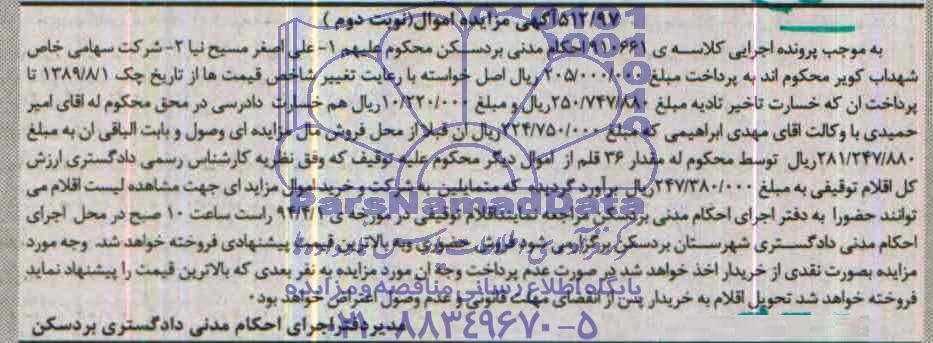 ۵۱۲/۹۷آگهی مزایده اموال(نوبت دوم)
به موجب پرونده اجرایی کلاسه ی ۹۱۰۶۶۱ احکام مدنی بردسکن محکوم علیهم ۱- علی اصغر مسیح نیا ۲- شرکت سهامی خاص
شهداب کویر محکوم اند به پرداخت مبلغ ۲۰۵/۰۰۰/۰۰۰ ریال اصل خواسته با رعایت تغییر شاخص قیمت ها از تاریخ چک ۱۳۸۹/۸/۱ تا
پرداخت ان که خسارت تاخیر تادیه مبلغ ۲۵۰/۷۴۷/۸۸۰ریال و مبلغ ۱۰/۲۲۰/۰۰۰ریال هم خسارت دادرسی در محق محکوم له اقای امیر
حمیدی با وکالت اقای مهدی ابراهیمی که مبلغ ۲۲۴/۷۵۰/۰۰۰ریال ان قبلا از محل فروش مال مزایده ای وصول و بابت الباقی ان به مبلغ
۲۸۱/۲۴۷/۸۸۰ریال توسط محکوم له مقدار ۳۶ قلم از اموال دیگر محکوم علیه توقیف که وفق نظریه کارشناس رسمی دادگستری ارزش
کل اقلام توقیفی به مبلغ ۲۴۷/۳۸۰/۰۰۰ریال برآورد گردیده که متمایلین به شرکت و خرید اموال مزاید ای جهت مشاهده لیست اقلام می
توانند حضورا به دفتر اجرای احکام مدنی بردسکن مراجعه نماینداقلام توقیفی در مورخه ی ۹۴/۴/۱ راست ساعت ۱۰ صبح در محل اجرای
احکام مدنی دادگستری شهرستان بردسکن برگزار می شود فروش حضوری و به بالاترین قیمت پیشنهادی فروخته خواهد شد. وجه مورد
مزایده بصورت نقدی از خریدار اخذ خواهد شد در صورت عدم پرداخت وجه ان مورد مزایده به نفر بعدی که بالاترین قیمت را پیشنهاد نماید
فروخته خواهد شد تحویل اقلام به خریدار پس از انقضای مهلت قانونی و عدم وصول اعتراض خواهد بود.
مدیردفتراجرای احکام مدنی دادگستری بردسکن
ParsNamadData
پایگاه اطلاع رسانی مناقصه و مزایده
۰۲۱-۸۸۳۴۹۶۷۰-۵